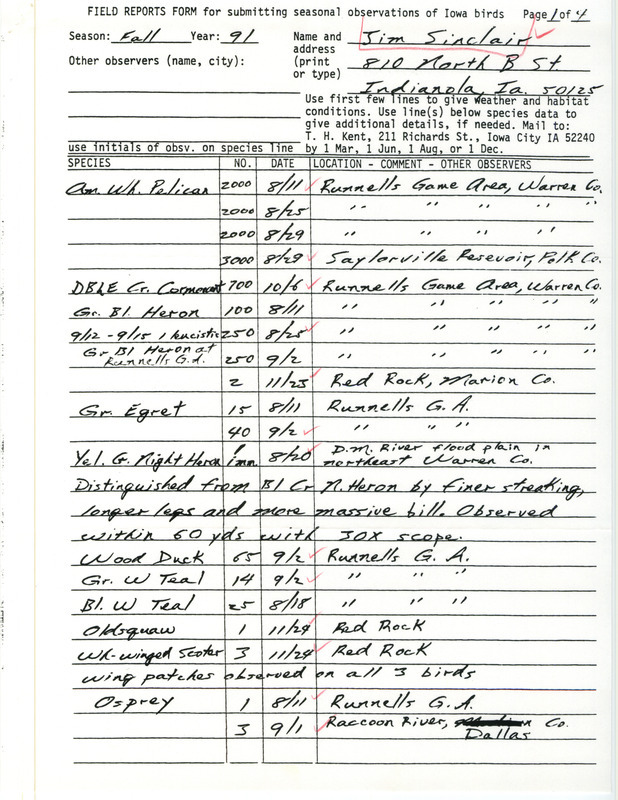 FIELD REPORTS FORM for submitting seasonal observations of Iowa birds Page 1 of 4
Season: Fall Year: 91 Name and Jim Sinclair
address 810 North B St
Other observers (name, city): (print
or type) Indianola, Ia. 50125
Use first few lines to give weather and habitat
conditions. Use line(s) below species data to
give additional details, if needed. Mail to:
T. H. Kent, 211 Richards St., Iowa City IA 52240
use initials of obsv. on species line by 1 Mar, 1 Jun, 1 Aug, or 1 Dec.
SPECIES NO. DATE LOCATION - COMMENT - OTHER OBSERVERS
Am. Wh. Pelican 2000 8/11 Runnells Game Area, Warren Co.
2000 8/25 " " " " "
2000 8/29 " " " " "
3000 8/29 Saylorville Resevoir, Polk Co.
DBLE Cr. Cormorant 700 10/6 Runnells Game Area, Warren Co.
Gr. Bl. Heron 100 8/11 " " " " "
9/12 - 9/15 1 leucistic 250 8/25 " " " " "
Gr Bl Heron at
Runnells G.A. 250 9/2 " " " " "
2 11/23 Red Rock, Marion Co.
Gr. Egret 15 8/11 Runnells G. A.
40 9/2 " " "
Yel. C. Night Heron 1 imm. 8/20 D.M. River flood plain in
northeast Warren Co.
Distinguished from Bl Cr N. Heron by finer streaking,
longer legs and more massive bill. Observed
within 60 yds with 30X scope.
Wood Duck 65 9/2 Runnells G. A.
Gr. W Teal 14 9/2 " " "
Bl. W Teal 25 8/18 " " "
Oldsquaw 1 11/29 Red Rock
Wh-winged Scoter 3 11/29 Red Rock
wing patches observed on all 3 birds
Osprey 1 8/11 Runnells G. A.
3 9/1 Raccoon River, Co.
Dallas